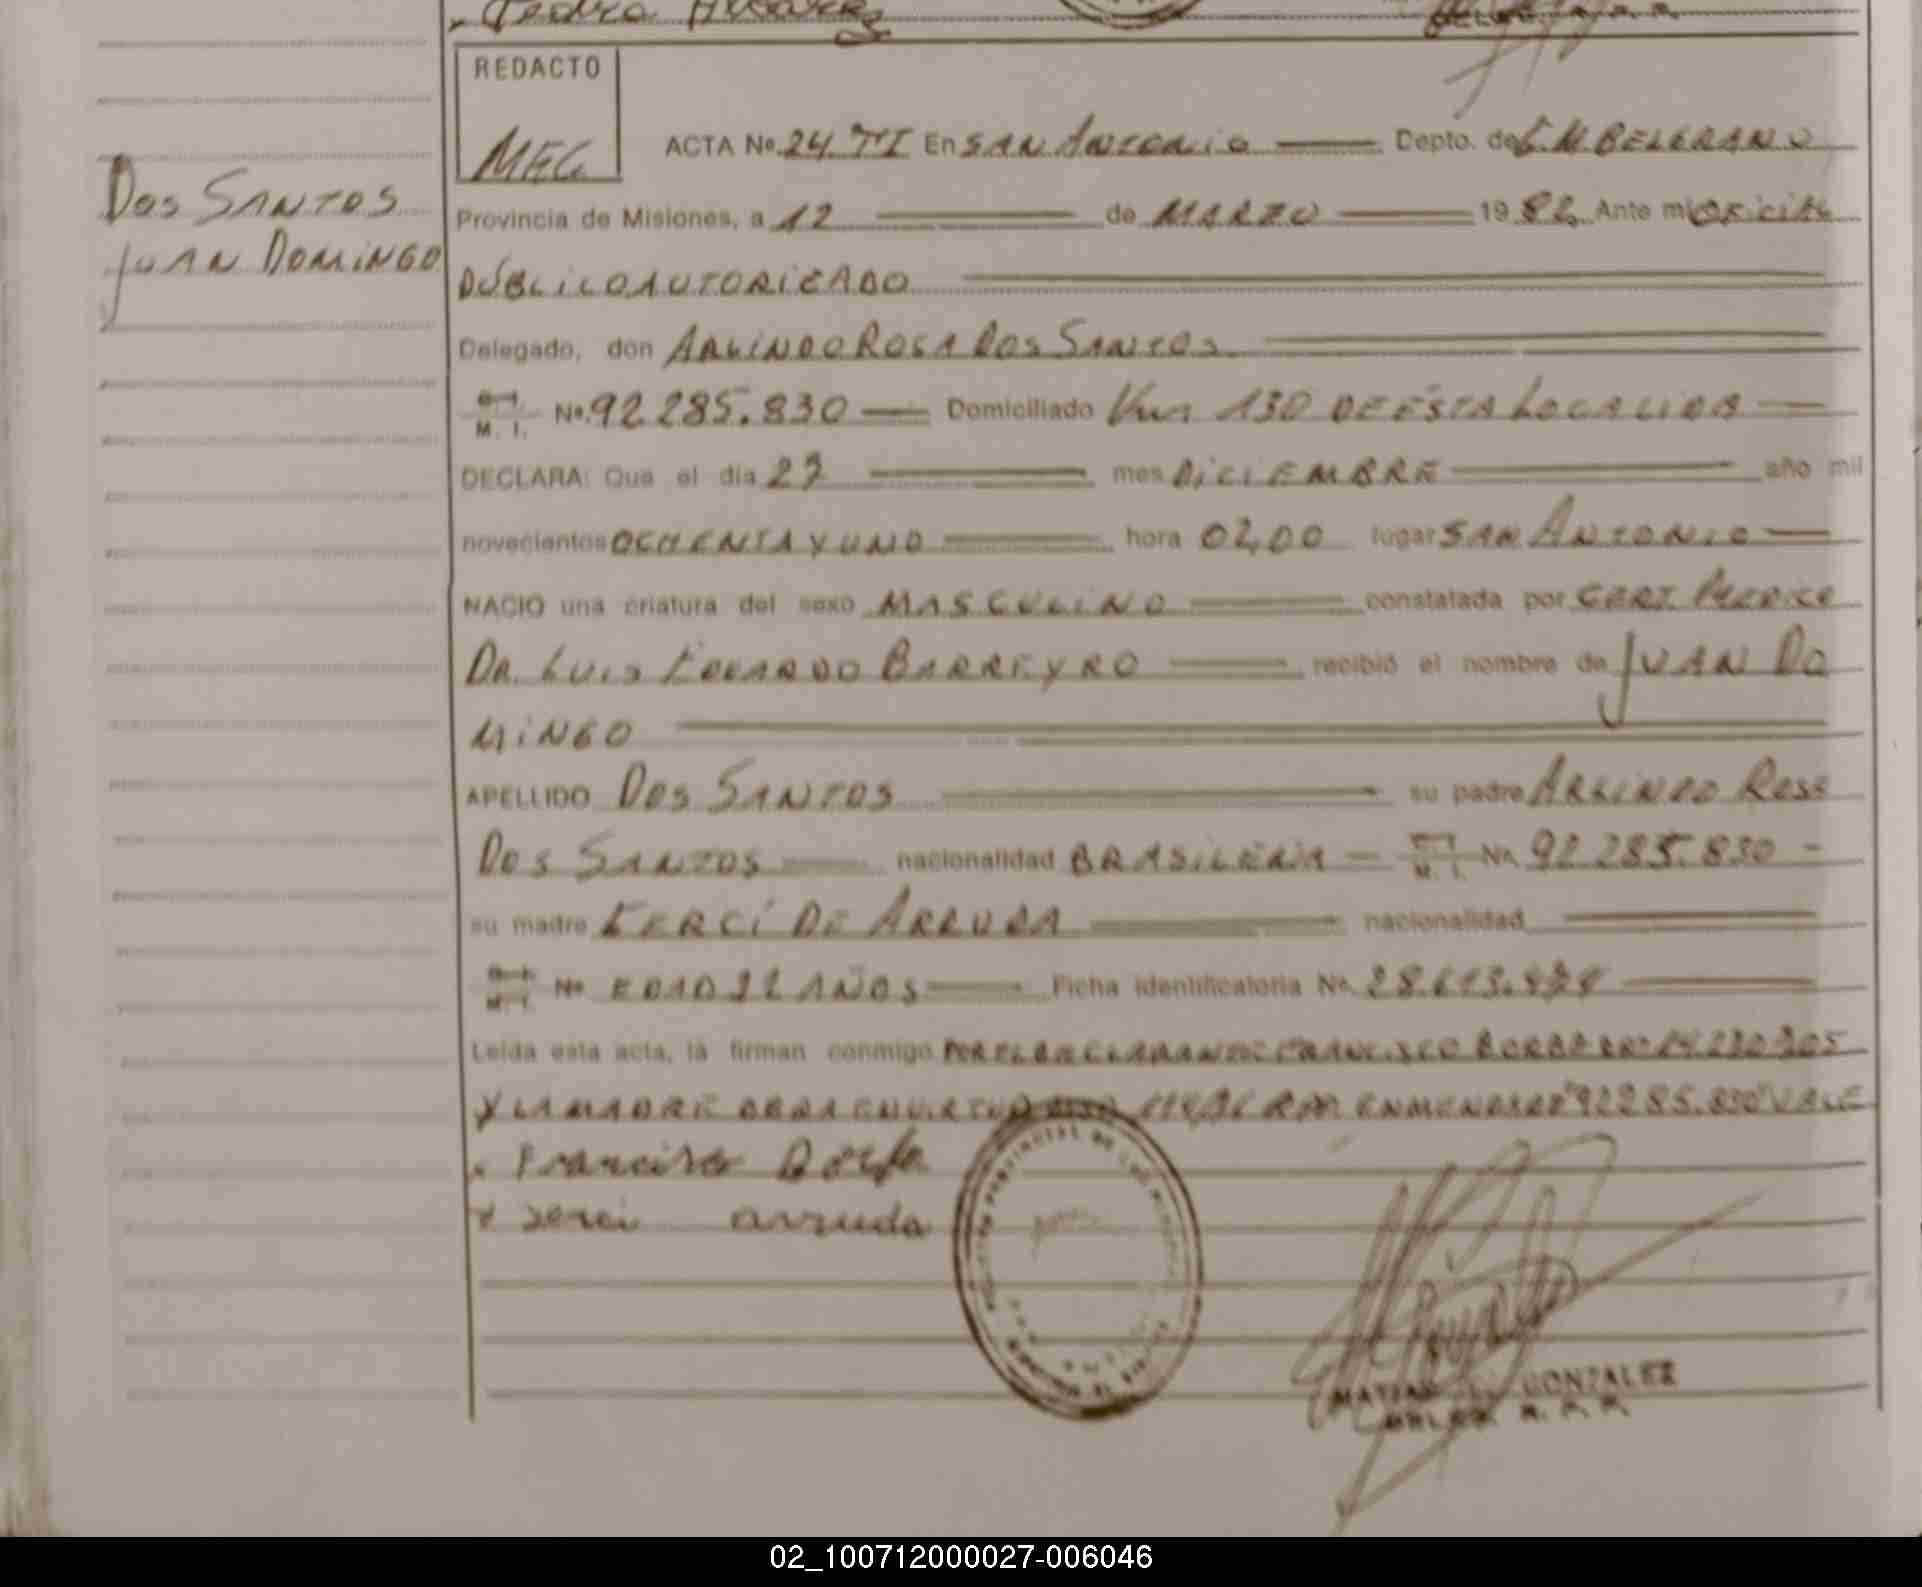 REDACTO
MEG
ACTA Nº 24 TI En SAN ANTONIO Depto. de G. M BELGRANO
DOS SANTOS
JUAN DOMINGO
Provincia de Misiones, a 12 de MARZO 1982 Ante mi OFICIAL
PÚBLICO AUTORIZADO
Delegado, don ARLINDO ROSA DOS SANTOS
M. I. Nº 92.285.830 Domiciliado Km 130 DE ESTA LOCALIDA
DECLARA: Que el día 27 mes DICIEMBRE año mil
novecientos OCHENTA Y UNO hora 02,00 lugar SAN ANTONIO
NACIO una criatura del sexo MASCULINO constatada por CERT. MEDICO
DR. LUIS EDUARDO BARREYRO recibió el nombre de JUAN DO
MINGO
APELLIDO DOS SANTOS su padre ARLINDO ROSA
DOS SANTOS nacionalidad BRASILERA M. I. Nº 92.285.830
su madre DE ARRUDA nacionalidad
M. I. Nº EDAD 22 AÑOS Ficha Identificatoria Nº 28.613.
Leída esta acta, la firman conmigo POR EL DECLARANTE FRANCISCO BORBA
Y LA MADRE OBRA EN VIRTUD ENMENDADO "92285.830" VALE
Francisco Borba
x serci arruda
GONZALEZ
02_100712000027-006046